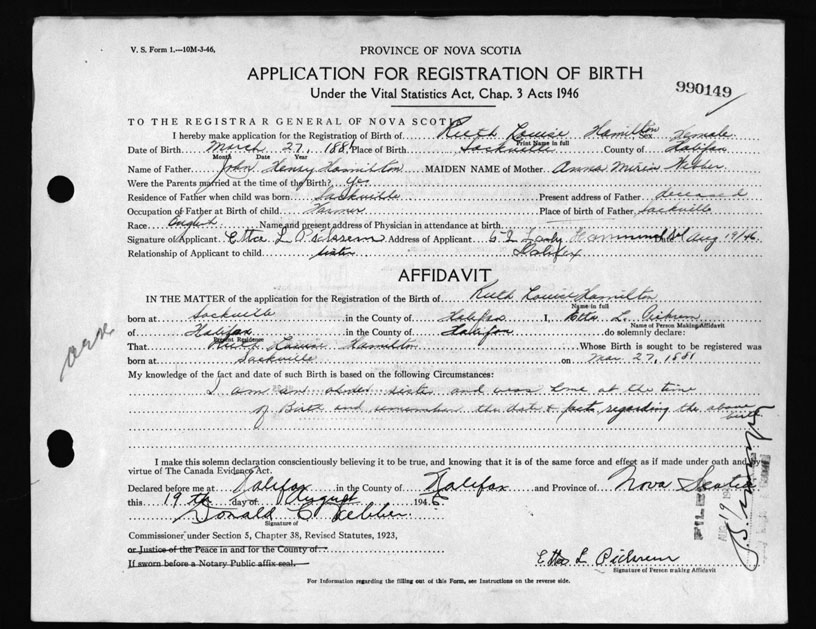 V. S. Form 1.—10M-3-46.
PROVINCE OF NOVA SCOTIA
APPLICATION FOR REGISTRATION OF BIRTH
990149
Under the Vital Statistics Act, Chap. 3 Acts 1946
TO THE REGISTRAR GENERAL OF NOVA SCOTIA
I hereby make application for the Registration of Birth of Ruth Louise Hamilton Sex Female
Print Name in full
Date of Birth March 27, 1881 Place of Birth Sackville County of Halifax
Month Date Year
Name of Father John Henry Hamilton MAIDEN NAME of Mother Anna Webber
Were the Parents married at the time of the Birth? Yes
Residence of Father when child was born Sackville Present address of Father deceased
Occupation of Father at Birth of child Farmer Place of birth of Father Sackville
Race English Name and present address of Physician in attendance at birth
Signature of Applicant Etta L Pickrem Address of Applicant Date Aug 19/46
Relationship of Applicant to child sister Halifax
AFFIDAVIT
IN THE MATTER of the application for the Registration of Birth of Ruth Louise Hamilton
Name in full
born at Sackville in the County of Halifax I, Etta L. Pickrem
Name of Person Making Affidavit
of Halifax in the County of Halifax do solemnly declare:
Present Residence
That Ruth Louise Hamilton Whose Birth is sought to be registered was
born at Sackville on Mar 27, 1881
My knowledge of the fact and date of such Birth is based on the following Circumstances:
I am an older sister and was home at the time
of Birth and remember the date & facts regarding the above birth
I make this solemn declaration conscientiously believing it to be true, and knowing that it is of the same force and effect as if made under oath and by
virtue of The Canada Evidence Act.
Declared before me at Halifax in the County of Halifax and Province of Nova Scotia
this 19th day of August 1946
Donald C Webber
Signature of
Commissioner under Section 5, Chapter 38, Revised Statutes, 1923,
or Justice of the Peace in and for the County of
If sworn before a Notary Public affix seal.
Etta L Pickrem
Signature of Person making Affidavit
FILED
For Information regarding the filling out of this Form, see Instructions on the reverse side.